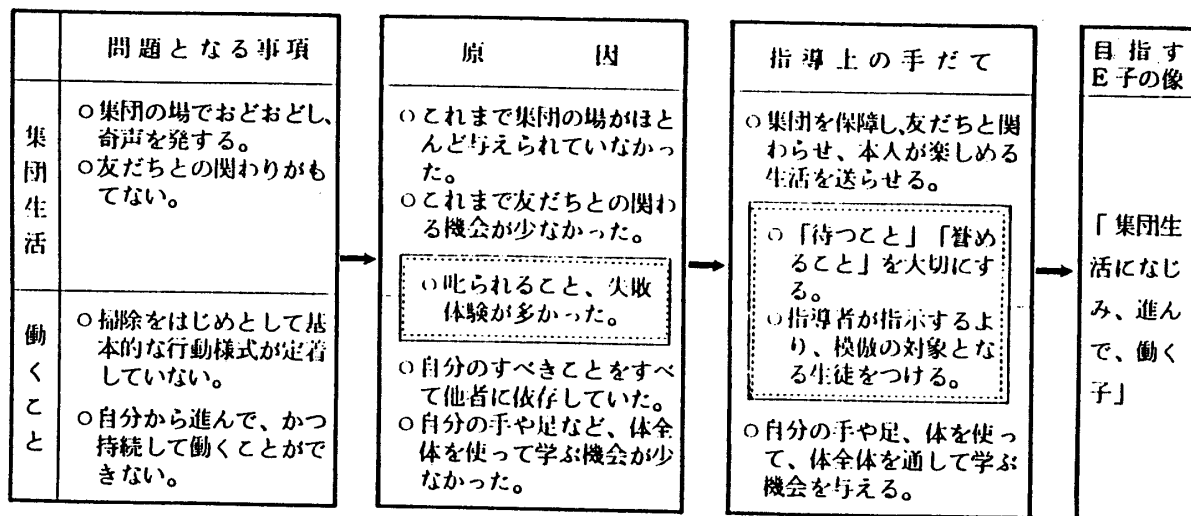 問題となる事項
集団生活
○集団の場でおどおどし、
奇声を発する。
○友だちとの関わりがも
てない。
働くこと
○掃除をはじめとして基
本的な行動様式が定着
していない。
○自分から進んで、かつ
持続して働くことがで
きない。
原因
○これまで集団の場がほと
んど与えられていなかっ
た。
○これまで友だちとの関わ
る機会が少なかった。
○叱られること、失敗
体験が多かった。
○自分のすべきことをすべ
て他者に依存していた。
○自分の手や足など、体全
体を使って学ぶ機会が少
なかった。
指導上の手だて
○集団を保障し、友だちと関
わらせ、本人が楽しめる
生活を送らせる。
○「待つこと」「誉め
ること」を大切にす
る。
○指導者が指示するよ
り、模倣の対象とな
る生徒をつける。
○自分の手や足、体を使っ
て、体全体を通して学ぶ
機会を与える。
目指す
E子の像
「集団生
活になじ
み、進ん
で、働く
子」